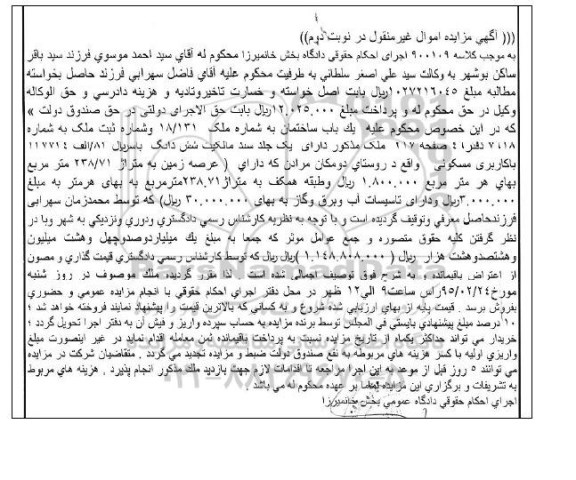 ((( آگهي مزايده اموال غيرمنقول در نوبت دوم))
به موجب کلاسه ۹۰۰۱۰۹ اجراي احکام حقوقي دادگاه بخش خانميرزا محکوم له آقاي سيد احمد موسوي فرزند سيد باقر
ساکن بوشهر به وکالت سيد علي اصغر سلطاني به طرفيت محکوم عليه آقاي فاضل سهرابي فرزند حاصل بخواسته
مطالبه مبلغ ۱۰۲۷۲۱۲۰۴۵ريال بابت اصل خواسته و خسارت تاخيروتاديه و هزينه دادرسي و حق الوکاله
وکيل در حق محکوم له و پرداخت مبلغ ۱۲.۰۲۵.۰۰۰ريال بابت حق الاجراي دولتي در حق صندوق دولت »
که در اين خصوص محکوم عليه يك باب ساختمان به شماره ملک ۱۸/۱۳۱ وشماره ثبت ملک به شماره
۷۰۱۸ دفتر٤١ صفحه ۲۱۷ ملک مذکور داراي يک جلد سند مالکيت شش دانگ باسريال ۸۱/الف ۱۱۷۷۱٤
باکاربري مسکوني واقع د روستاي دومکان مرادن که داراي ( عرصه زمين به متراژ ۲۳۸/۷۱ متر مربع
بهاي هر متر مربع ۱,۸۰۰,۰۰۰ ريال وطبقه همکف به متراژ۲۳۸,۷۱مترمربع به بهاي هرمتر به مبلغ
۳,۰۰۰,۰۰۰ريال وداراي تاسيسات آب وبرق وگاز به بهاي ۳۰,۰۰۰,۰۰۰ ريال) که توسط محمدزمان سهرابي
فرزندحاصل معرفي وتوقيف گرديده است و با توجه به نظريه کارشناس رسمي دادگستري ودوري ونزديکي به شهر وبا در
نظر گرفتن کليه حقوق متصوره و جمع عوامل موثر که جمعا به مبلغ يك ميلياردوصدوچهل وهشت ميليون
وهشتصدوهشت هزار ريال ( ۱,۱٤۸,۸۰۸,۰۰۰ )ريال ريال که توسط کارشناس رسمي دادگستري قيمت گذاري و مصون
از اعتراض باقيمانده ، به شرح فوق توصيف اجمالي شده است . لذا مقرر گرديده ملك موصوف در روز شنبه
مورخ۹۵/۰۲/۲٤راس ساعت۹ الي۱۲ ظهر در محل دفتر اجراي احکام حقوقي با انجام مزايده عمومي و حضوري
بفروش برسد . قيمت پايه از بهاي ارزيابي شده شروع و به کساني که بالاترين قيمت را پيشنهاد نمايند فروخته خواهد شد ؛
۱۰ درصد مبلغ پيشنهادي بايستي في المجلس توسط برنده مزايده به حساب سپرده واريز و فيش آن به دفتر اجرا تحويل گردد ؛
خريدار مي تواند حداکثر يکماه از تاريخ مزايده نسبت به پرداخت باقيمانده ثمن معامله اقدام نمايد در غير اينصورت مبلغ
واريزي اوليه با کسر هزينه هاي مربوطه به نفع صندوق دولت ضبط و مزايده تجديد مي گردد . متقاضيان شرکت در مزايده
مي توانند ۵ روز قبل از موعد به اين اجرا مراجعه تا اقدامات لازم جهت بازديد ملك مذکور انجام پذيرد . هزينه هاي مربوط
به تشريفات و برگزاري اين مزايده تماما بر عهده محکوم له مي باشد .
اجراي احکام حقوقي دادگاه عمومي بخش خانميرزا